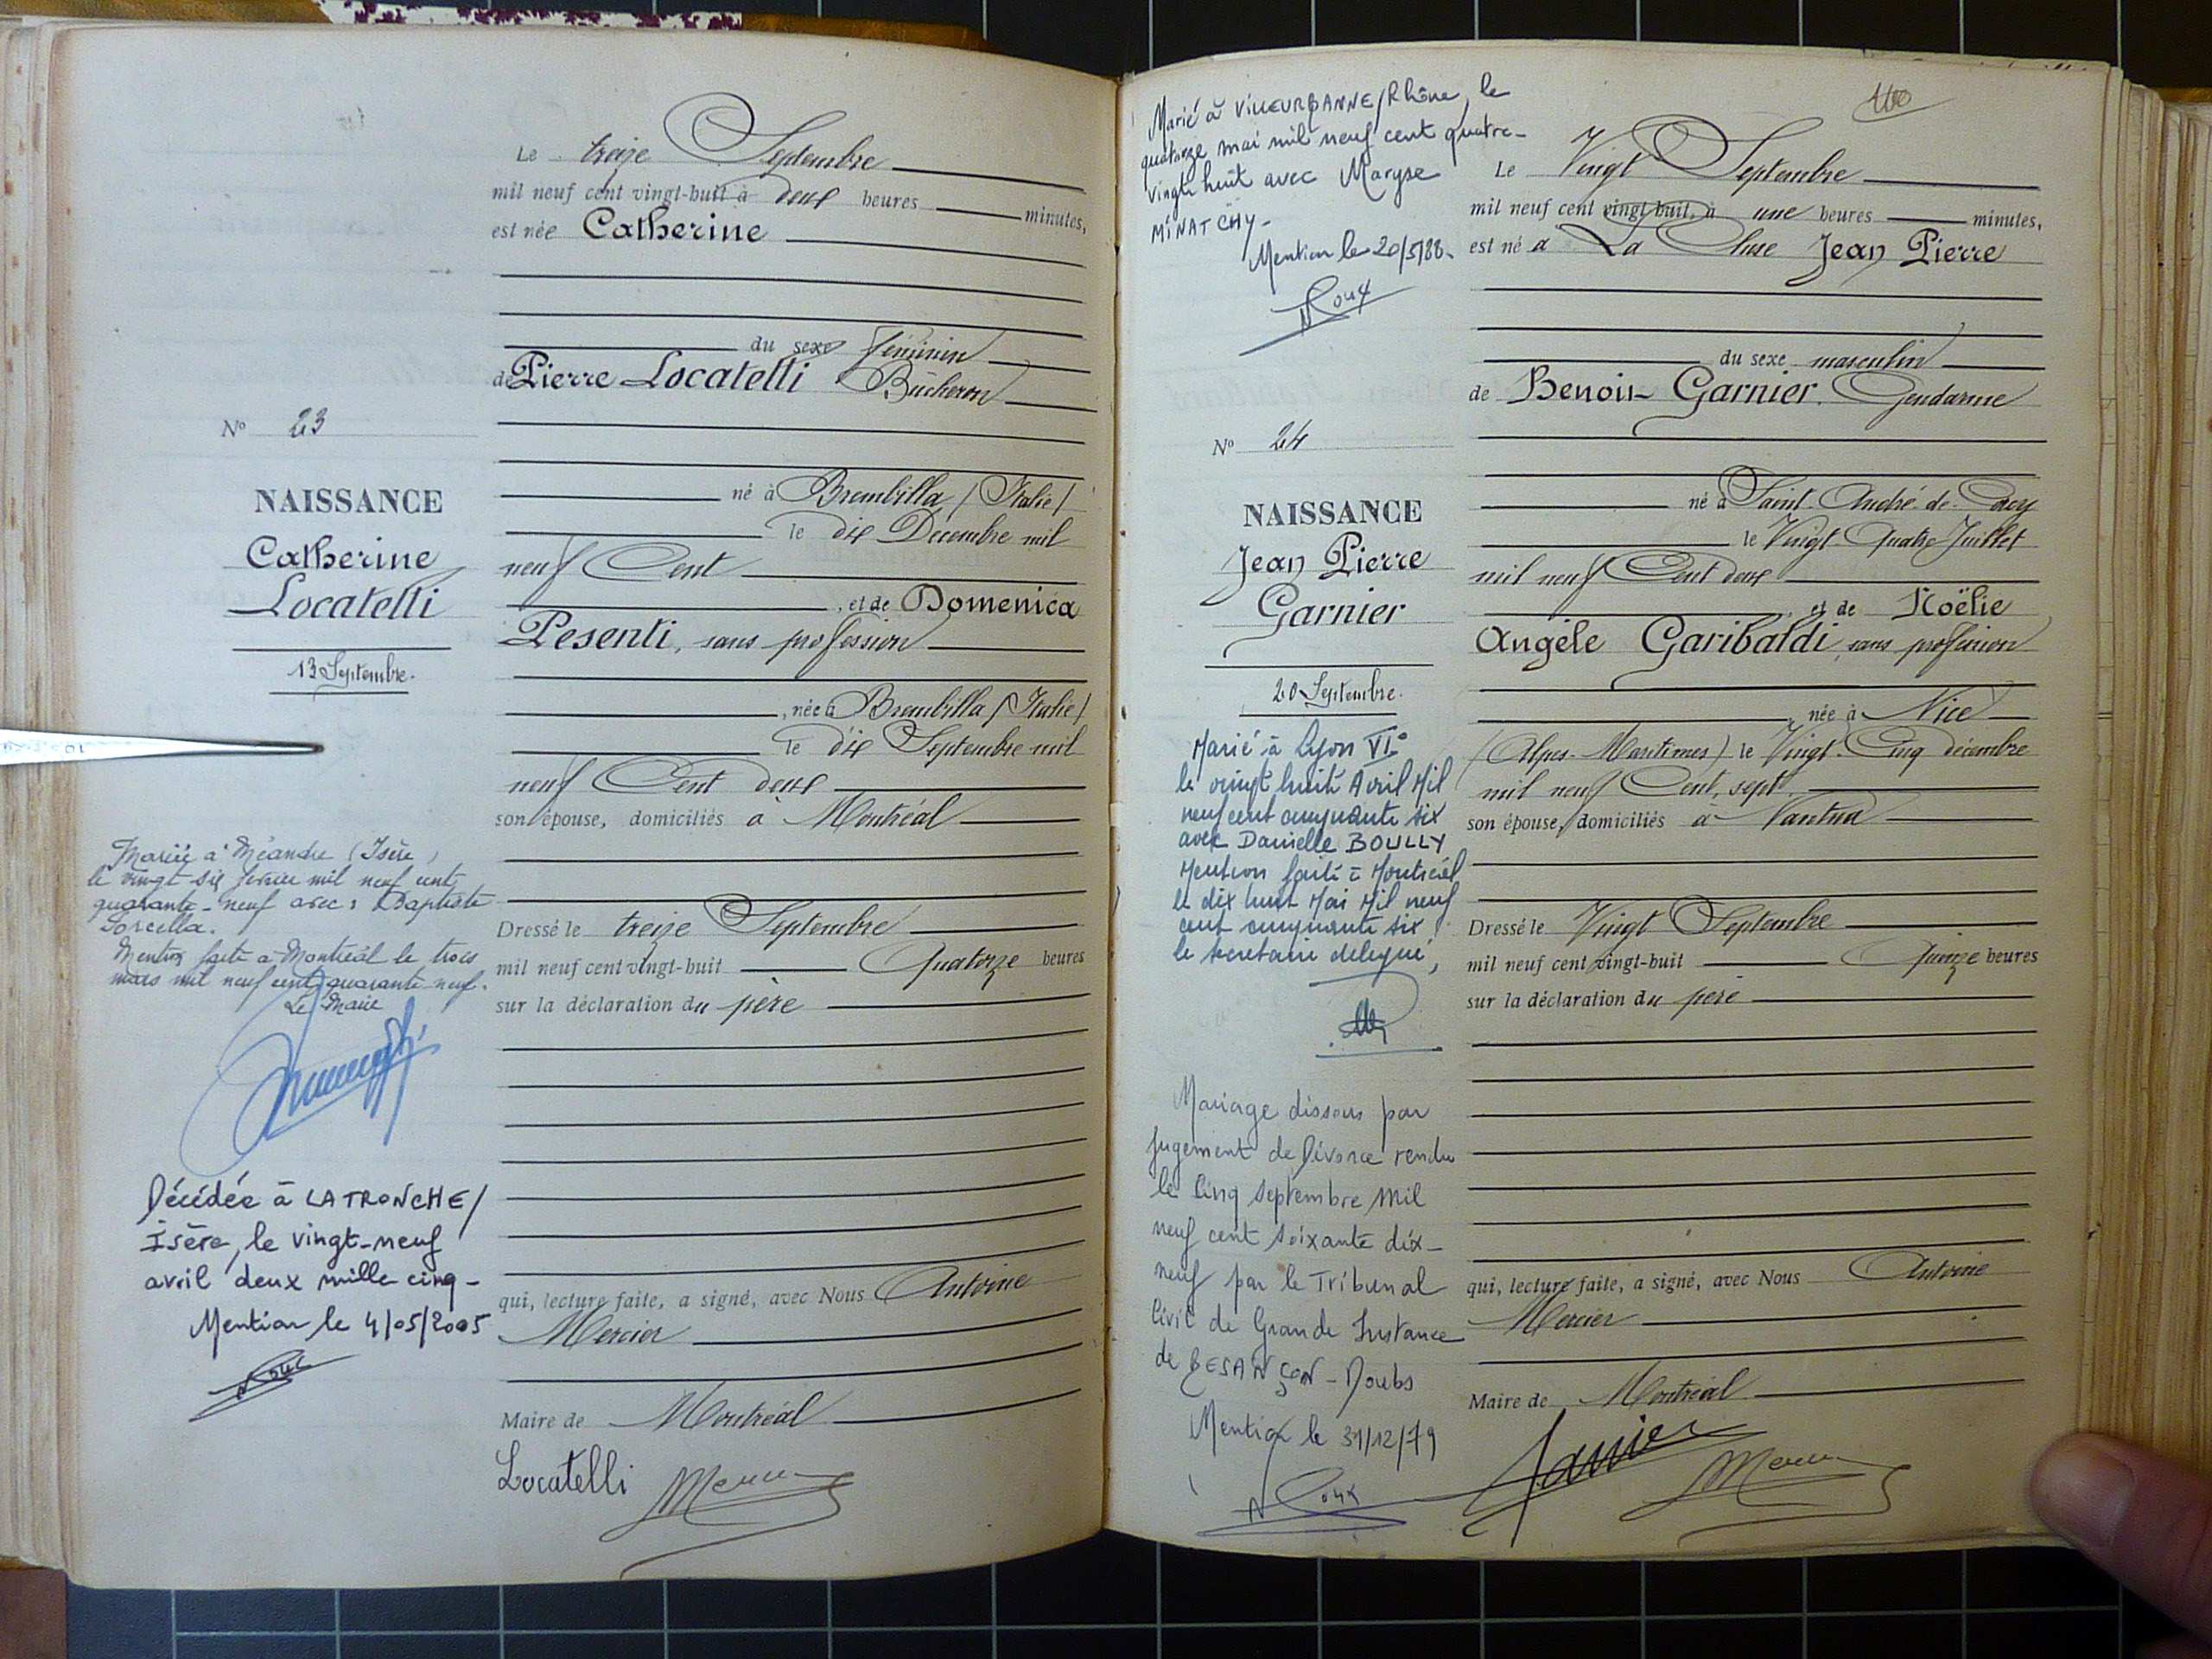 Le treize Septembre
mil neuf cent vingt-huit à deux heures minutes,
est née Catherine
du sexe féminin
de Pierre Locatelli Bûcheron
N° 23
né à Brembilla (Italie)
NAISSANCE
le dix Decembre mil
Catherine
neuf Cent
Locatelli
, et de Domenica
Pesenti, sans profession
13 Septembre.
, née à Brembilla (Italie)
le dix Septembre mil
neuf Cent deux
son épouse, domiciliés à Montréal
Mariée à Méandre (Isère)
le vingt six février mil neuf cent
quarante-neuf avec: Baptiste
Mention faite à Montréal le trois
mars mil neuf cent quarante-neuf.
Le Maire
Dressé le treize Septembre
mil neuf cent vingt-huit Quatorze heures
sur la déclaration du père
Décédée à LA TRONCHE/
Isère, le vingt-neuf
avril deux mille cinq-
Mention le 4/05/2005
Roux
qui, lecture faite, a signé, avec Nous Antoine
Mercier
Maire de Montréal
Locatelli Mercier
100
Marié à VILLEURBANNE/Rhône, le
quatorze mai mil neuf cent quatre-
vingt huit avec Maryse
MINATCHY-
Mention le 20/5/88.
Roux
Le Vingt Septembre
mil neuf cent vingt-huit, à une heures minutes,
est né à La Cluse Jean Pierre
du sexe masculin
de Benoit Garnier. Gendarme
N° 24
né à Saint-André-de-Corcy
NAISSANCE
le Vingt-Quatre Juillet
Jean Pierre
mil neuf Cent deux
Garnier
, et de Noëlie
Angèle Garibaldi, sans profession
20 Septembre.
née à Nice
(Alpes-Maritimes) le Vingt-Cinq décembre
mil neuf Cent, sept.
son épouse, domiciliés à Nantua
Marié à Lyon VI°
le vingt huit Avril Mil
neuf cent cinquante six
avec Danielle BOULLY
Mention faite à Montréal
le dix huit Mai Mil neuf
cent cinquante six
le secrétaire délégué,
Dressé le Vingt Septembre
mil neuf cent vingt-huit Quinze heures
sur la déclaration du père
Mariage dissous par
jugement de Divorce rendu
le Cinq Septembre Mil
neuf cent soixante dix-
neuf par le Tribunal
Civil de Grande Instance
de BESANÇON - Doubs
Mention le 31/12/79
Roux
qui, lecture faite, a signé, avec Nous Antoine
Mercier
Maire de Montréal
Garnier Mercier